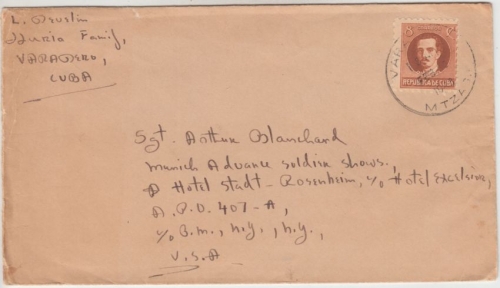 L. Drustin
Iduria Family,
VARADERO,
CUBA
REPUBLICA DE CUBA
VAR
MTZAS
Sgt. Arthur Blanchard
Munich Advance soldier shows,
A Hotel Stadt-Rosenheim, c/o Hotel Excelsior,
A.P.O. 407-A,
c/o P.M., N.Y., N.Y.,
U.S.A